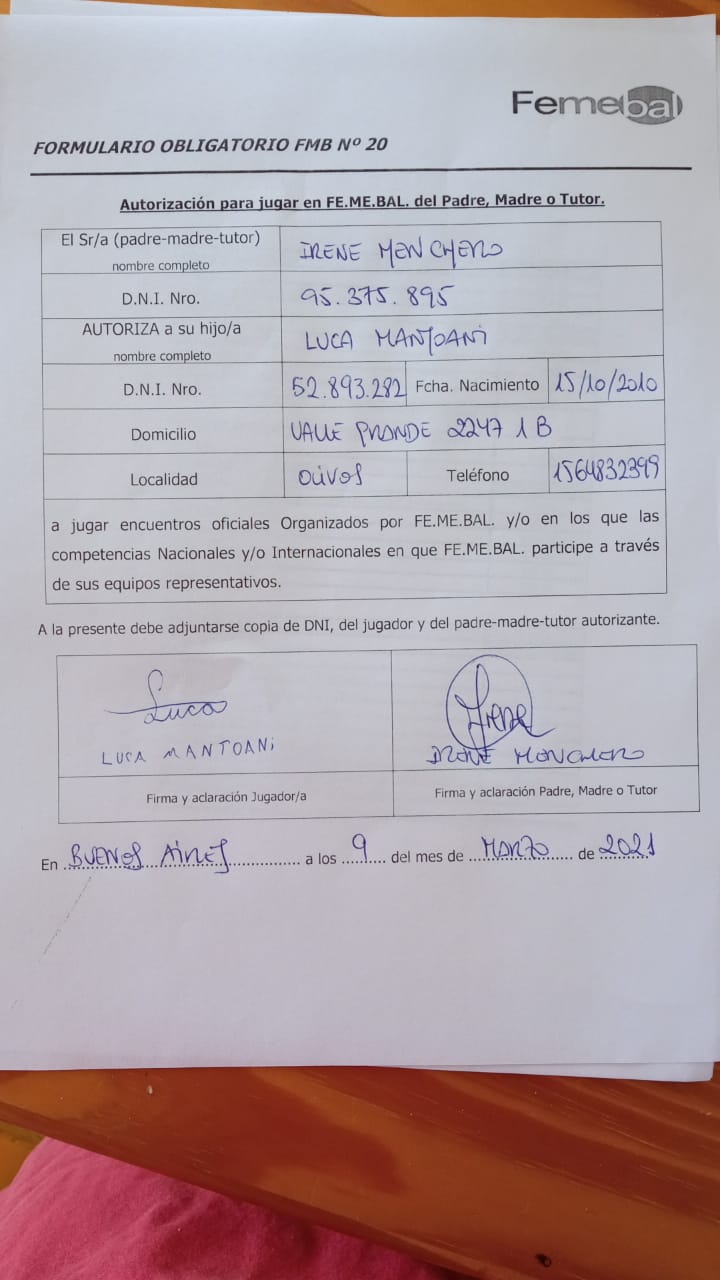 Femebal
FORMULARIO OBLIGATORIO FMB Nº 20
Autorización para jugar en FE.ME.BAL. del Padre, Madre o Tutor.
El Sr/a (padre-madre-tutor)
nombre completo
IRENE MENCHERO
D.N.I. Nro.
95.375.895
AUTORIZA a su hijo/a
nombre completo
LUCA MANTOANI
D.N.I. Nro.
52.893.282
Fcha. Nacimiento
15/10/2010
Domicilio
VALLE GRANDE 2247 1 B
Localidad
OLIVOS
Teléfono
1564832399
a jugar encuentros oficiales Organizados por FE.ME.BAL. y/o en los que las
competencias Nacionales y/o Internacionales en que FE.ME.BAL. participe a través
de sus equipos representativos.
A la presente debe adjuntarse copia de DNI, del jugador y del padre-madre-tutor autorizante.
Luca
LUCA MANTOANI
Firma y aclaración Jugador/a
Irene
IRENE MENCHERO
Firma y aclaración Padre, Madre o Tutor
En BUENOS AIRES a los 9 del mes de MARZO de 2021